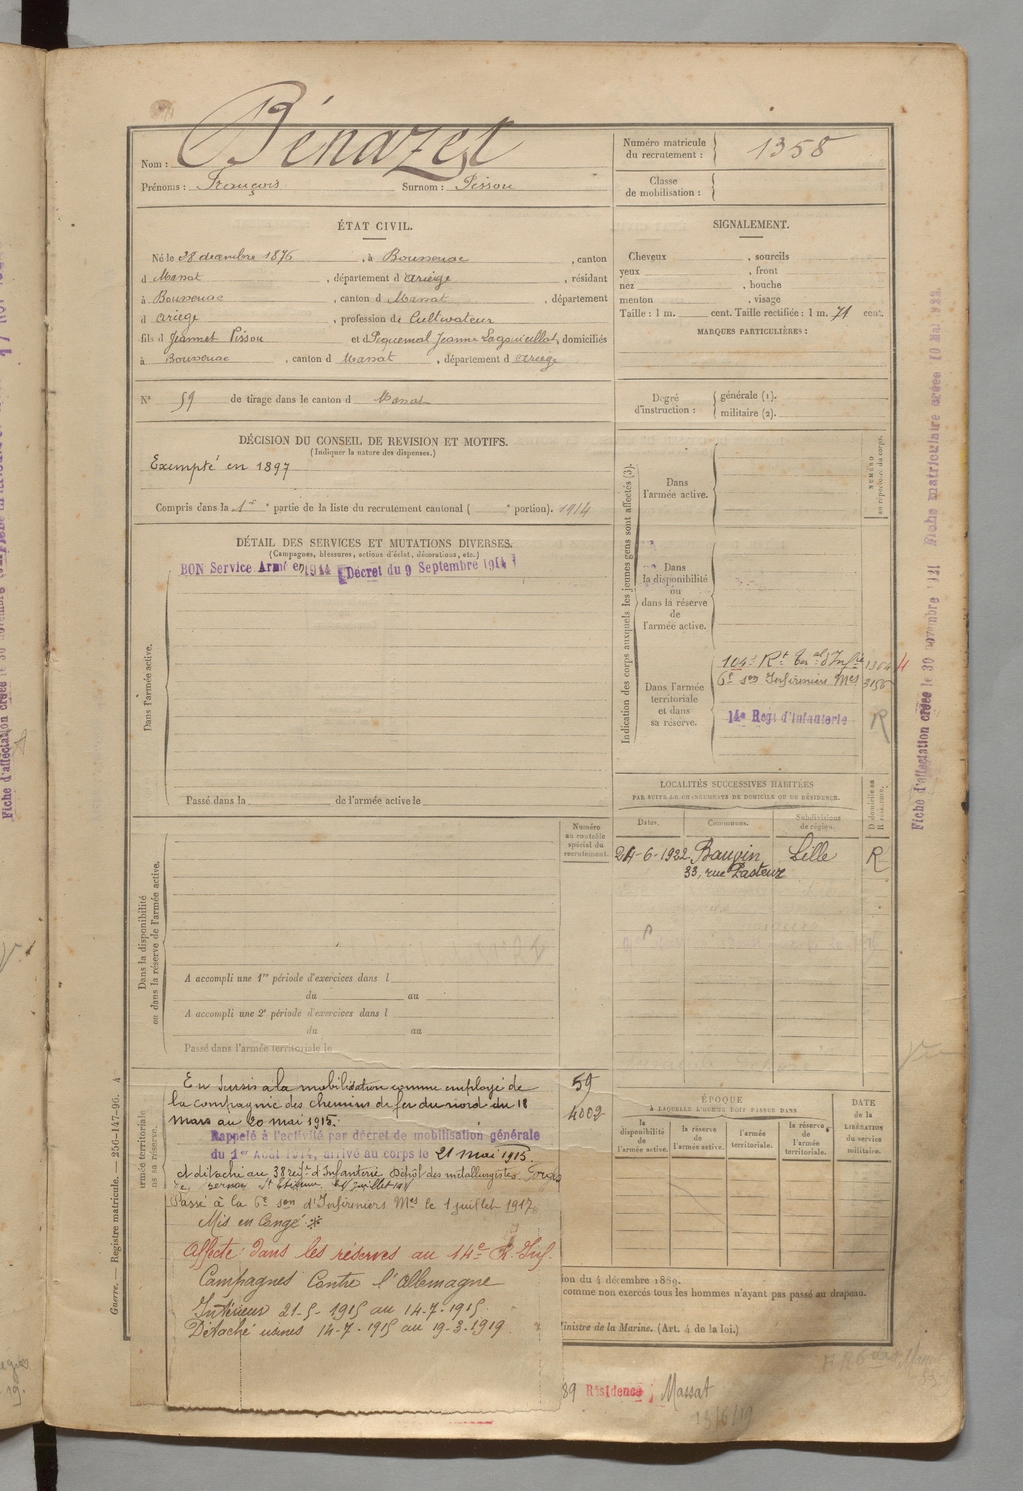 Nom : Bénazet
Prénoms : François Surnom : Pissou
Numéro matricule du recrutement : 1358
Classe de mobilisation :
ÉTAT CIVIL.
Né le 28 décembre 1876, à Boussenac, canton
d Massat, département d Ariège, résidant
à Boussenac, canton d Massat, département
d Ariège, profession de Cultivateur
fils d Jeannet Pissou et d Piquemal Jeanne, domiciliés
à Boussenac, canton d Massat, département d Ariège
N° 59 de tirage dans le canton d Massat
SIGNALEMENT.
Cheveux , sourcils
yeux , front
nez , bouche
menton , visage
Taille : 1 m. cent. Taille rectifiée : 1 m. 71 cent.
MARQUES PARTICULIÈRES :
Degré d'instruction : générale (1).
militaire (2).
DÉCISION DU CONSEIL DE REVISION ET MOTIFS.
(Indiquer la nature des dispenses.)
Exempté en 1897
Compris dans la 1re partie de la liste du recrutement cantonal ( e portion). 1914
DÉTAIL DES SERVICES ET MUTATIONS DIVERSES.
(Campagnes, blessures, actions d'éclat, décorations, etc.)
BON Service Armé en 1914 (Décret du 9 Septembre 1914)
Dans l'armée active.
Passé dans la de l'armée active le
Indication des corps auxquels les jeunes gens sont affectés (3).
NUMÉRO au répertoire du corps.
Dans l'armée active.
Dans la disponibilité ou dans la réserve de l'armée active.
Dans l'armée territoriale et dans sa réserve.
104e Rt Ter al d'Infie 1364
6e son Infirmiers Mres 3156
14e Regt d'Infanterie R
LOCALITÉS SUCCESSIVES HABITÉES
PAR SUITE DE CHANGEMENTS DE DOMICILE OU DE RÉSIDENCE.
Dates. Communes. Subdivisions de région. D domicile ou R résidence.
24-6-1922 Bauvin Lille R
33, rue Pasteur
Numéro au contrôle spécial du recrutement.
Dans la disponibilité ou dans la réserve de l'armée active.
A accompli une 1re période d'exercices dans l
du au
A accompli une 2e période d'exercices dans l
du au
Passé dans l'armée territoriale le
armée territoriale
ns sa réserve.
59
4002
En sursis à la mobilisation comme employé de
la compagnie des chemins de fer du nord du 18
mars au 20 mai 1915.
Rappelé à l'activité par décret de mobilisation générale
du 1er Août 1914, arrivé au corps le 21 mai 1915.
et détaché au 38 regt d'Infanterie Dépôt des métallurgistes. Forges
St Etienne juillet
Passé à la 6e son d'Infirmiers Mres le 1 juillet 1917
Mis en Congé
Affecté dans les réserves au 14e R. Inf.
Campagnes Contre l'Allemagne
Intérieur 21-5-1915 au 14-7-1915
Détaché usines 14-7-1915 au 19-3-1919
ÉPOQUE
À LAQUELLE L'HOMME DOIT PASSER DANS
la disponibilité de l'armée active. la réserve de l'armée active. l'armée territoriale. la réserve de l'armée territoriale.
DATE de la LIBÉRATION du service militaire.
ion du 4 décembre 1889.
comme non exercés tous les hommes n'ayant pas passé au drapeau.
Ministre de la Marine. (Art. 4 de la loi.)
89 Résidence ; Massat
13/6/19
Guerre. — Registre matricule. — 256-147-96. A
Fiche d'affectation créée le 30 novembre 1921 Fiche matriculaire créée 10 Mai 1922.
Fiche d'affectation créée le 30 novembre